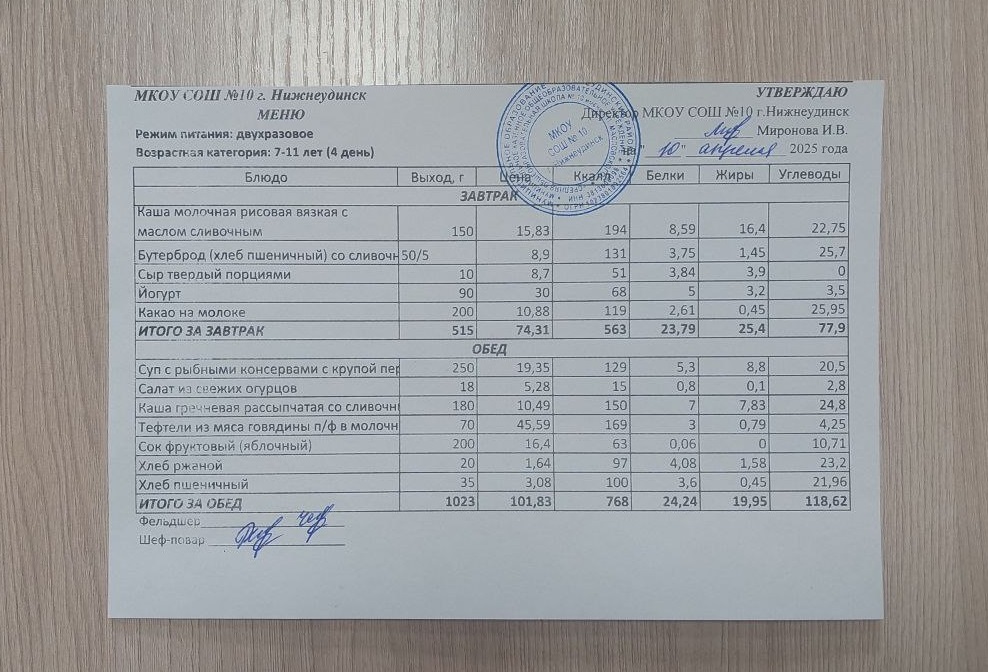 МКОУ СОШ №10 г. Нижнеудинск
УТВЕРЖДАЮ
МЕНЮ
Директор МКОУ СОШ №10 г.Нижнеудинск
Режим питания: двухразовое
Миронова И.В.
Возрастная категория: 7-11 лет (4 день)
на "10" апреля 2025 года
МКОУ
СОШ № 10
г. Нижнеудинск
Блюдо Выход, г Цена Ккалл Белки Жиры Углеводы
ЗАВТРАК
Каша молочная рисовая вязкая с
маслом сливочным 150 15,83 194 8,59 16,4 22,75
Бутерброд (хлеб пшеничный) со сливочн 50/5 8,9 131 3,75 1,45 25,7
Сыр твердый порциями 10 8,7 51 3,84 3,9 0
Йогурт 90 30 68 5 3,2 3,5
Какао на молоке 200 10,88 119 2,61 0,45 25,95
ИТОГО ЗА ЗАВТРАК 515 74,31 563 23,79 25,4 77,9
ОБЕД
Суп с рыбными консервами с крупой пер 250 19,35 129 5,3 8,8 20,5
Салат из свежих огурцов 18 5,28 15 0,8 0,1 2,8
Каша гречневая рассыпчатая со сливочн 180 10,49 150 7 7,83 24,8
Тефтели из мяса говядины п/ф в молочн 70 45,59 169 3 0,79 4,25
Сок фруктовый (яблочный) 200 16,4 63 0,06 0 10,71
Хлеб ржаной 20 1,64 97 4,08 1,58 23,2
Хлеб пшеничный 35 3,08 100 3,6 0,45 21,96
ИТОГО ЗА ОБЕД 1023 101,83 768 24,24 19,95 118,62
Фельдшер
Шеф-повар